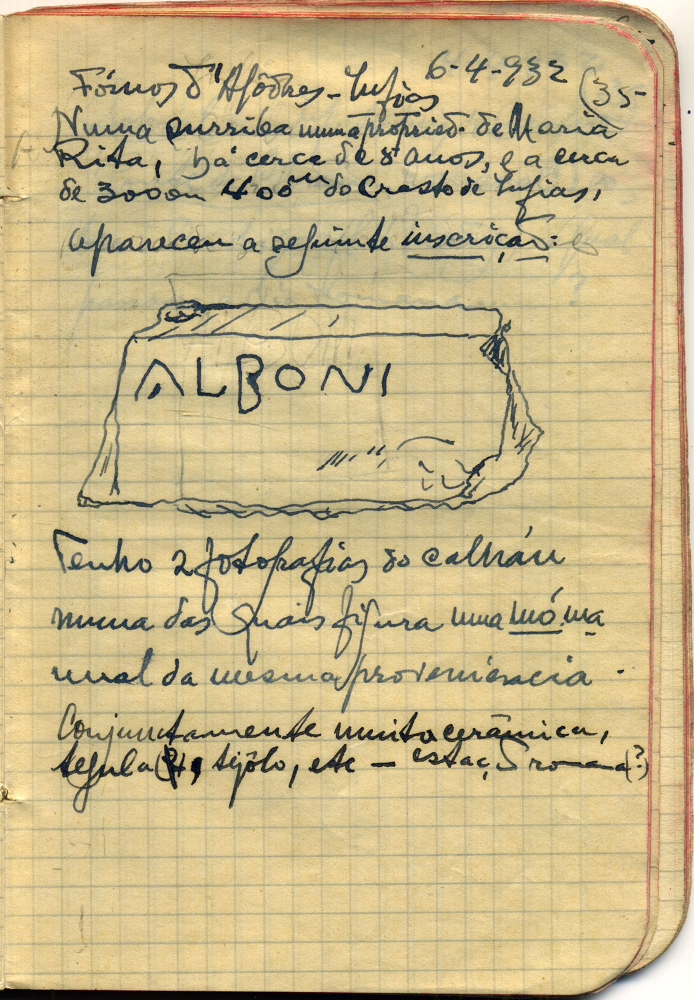 6-4-932
(35-
Fórnos d'Algôdres - Infias
Numa surriba numa propried. de Maria
Rita, há cerca de 8 anos, e a cerca
de 300 ou 400m do Crasto de Infias,
apareceu a seguinte inscrição:
ALBONI
Tenho 2 fotografias do calháu
numa das quais figura uma mó ma
nual da mesma proveniencia.
Conjuntamente muita cerâmica,
tegula(?), tijolo, etc - estaç. romana(?)